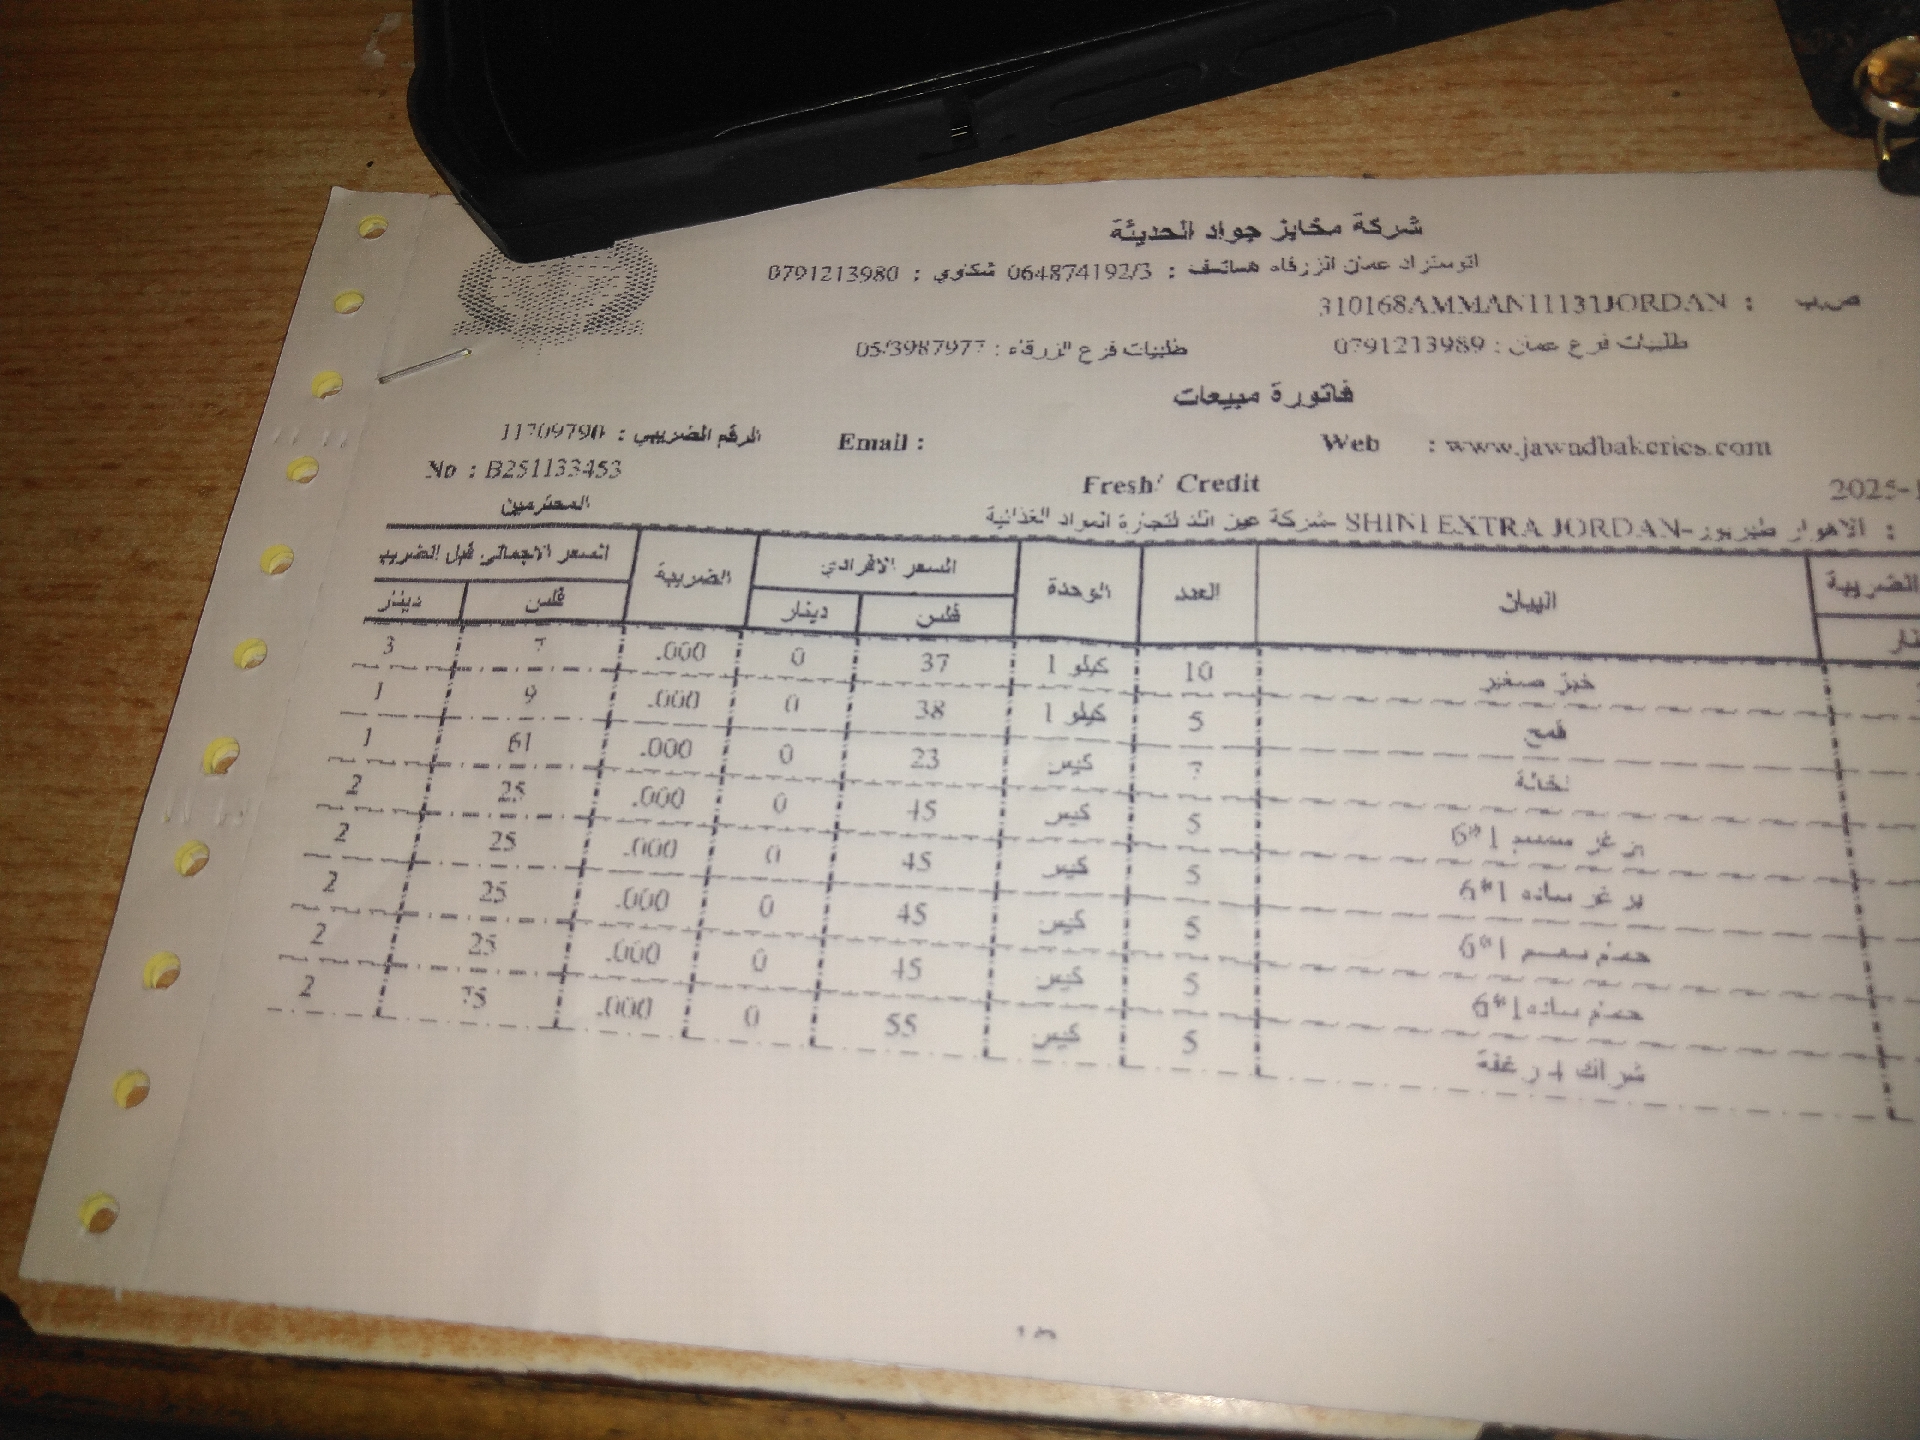 شركة مخابز جواد الحديثة
اتوستراد عمان الزرقاء هساتسف : 064874192/3 شكاوي : 0791213980
ص.ب : 310168AMMAN11131JORDAN
طلبيات فرع عمان : 0791213989 طلبيات فرع الزرقاء : 05/3987977
فاتورة مبيعات
Web : www.jawadbakeries.com Email : الرقم الضريبي : 11709790
No : B251133453
2025-1 Fresh/ Credit
المحترمين
: الاهوار طبربور-SHINI EXTRA JORDAN -شركة عين الد لتجارة المواد الغذائية
الضريبة البيان العدد الوحدة السعر الافرادي الضريبة السعر الاجمالي قبل الضريب
فلس دينار فلس دينار
خبز صغير 10 كيلو 1 37 0 .000 7 3
قمح 5 كيلو 1 38 0 .000 9 1
نخالة 7 كيس 23 0 .000 61 1
بر غر سمسم 1*6 5 كيس 45 0 .000 25 2
بر غر ساده 1*6 5 كيس 45 0 .000 25 2
حمام سمسم 1*6 5 كيس 45 0 .000 25 2
حمام ساده 1*6 5 كيس 45 0 .000 25 2
شراك 4 رغفة 5 كيس 55 0 .000 75 2